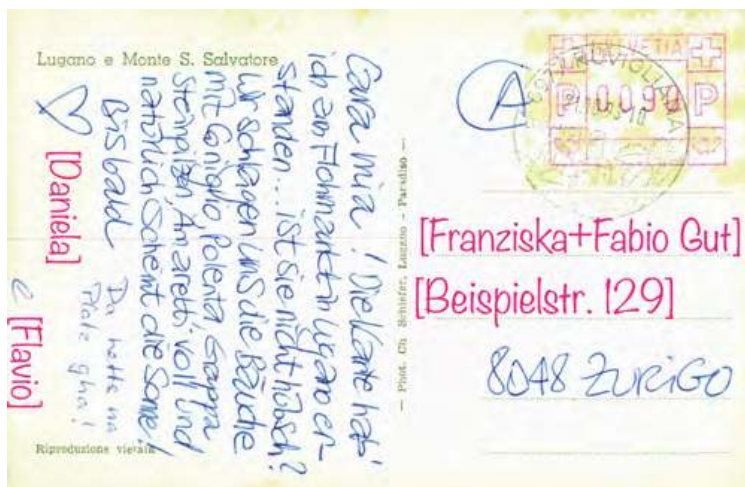 Lugano e Monte S. Salvatore
Cara mia! Die Karte hab'
ich am Flohmarkt in Lugano er-
standen... ist sie nicht hübsch?
Wir schlagen uns die Bäuche
mit Coniglio, Polenta, Grappa
Steinpilzen, Amaretti voll und
natürlich scheint die Sonne!
Bis bald
[Daniela]
e [Flavio]
Da hetts na
Platz gha!
Riproduzione vietata
— Phot. Ch. Schiefer, Lugano - Paradiso —
A
HELVETIA
P P
[Franziska+Fabio Gut]
[Beispielstr. 129]
8048 ZURIGO